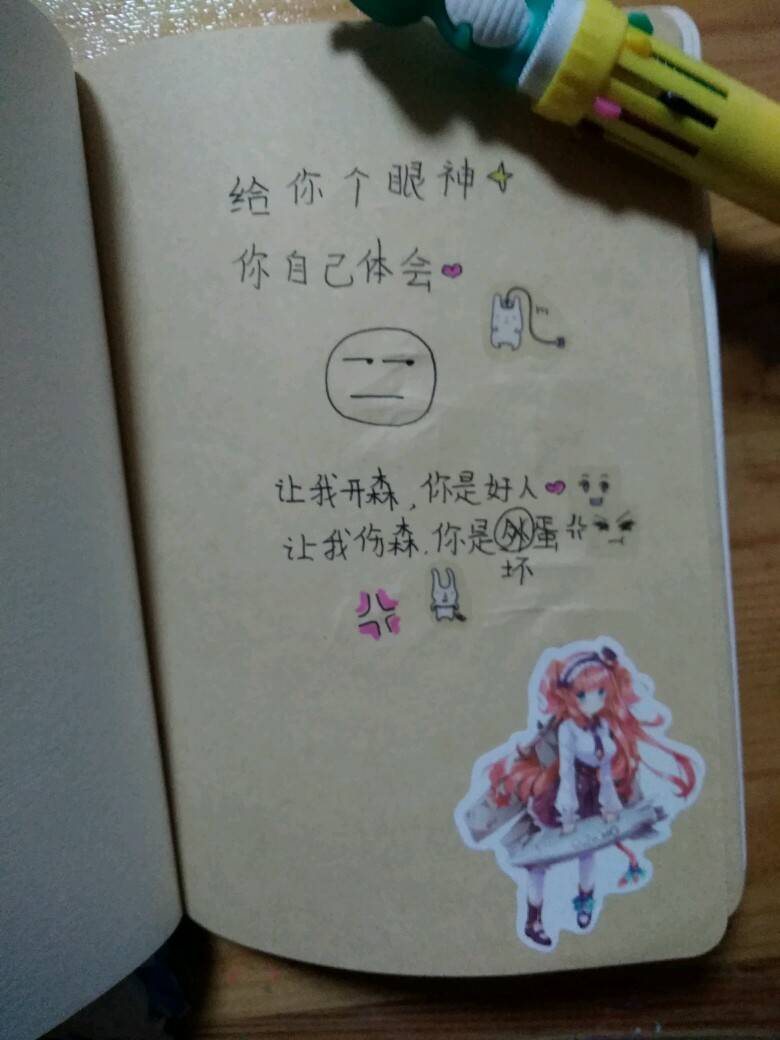 给你个眼神
你自己体会
让我开森,你是好人
让我伤森.你是外蛋
坏